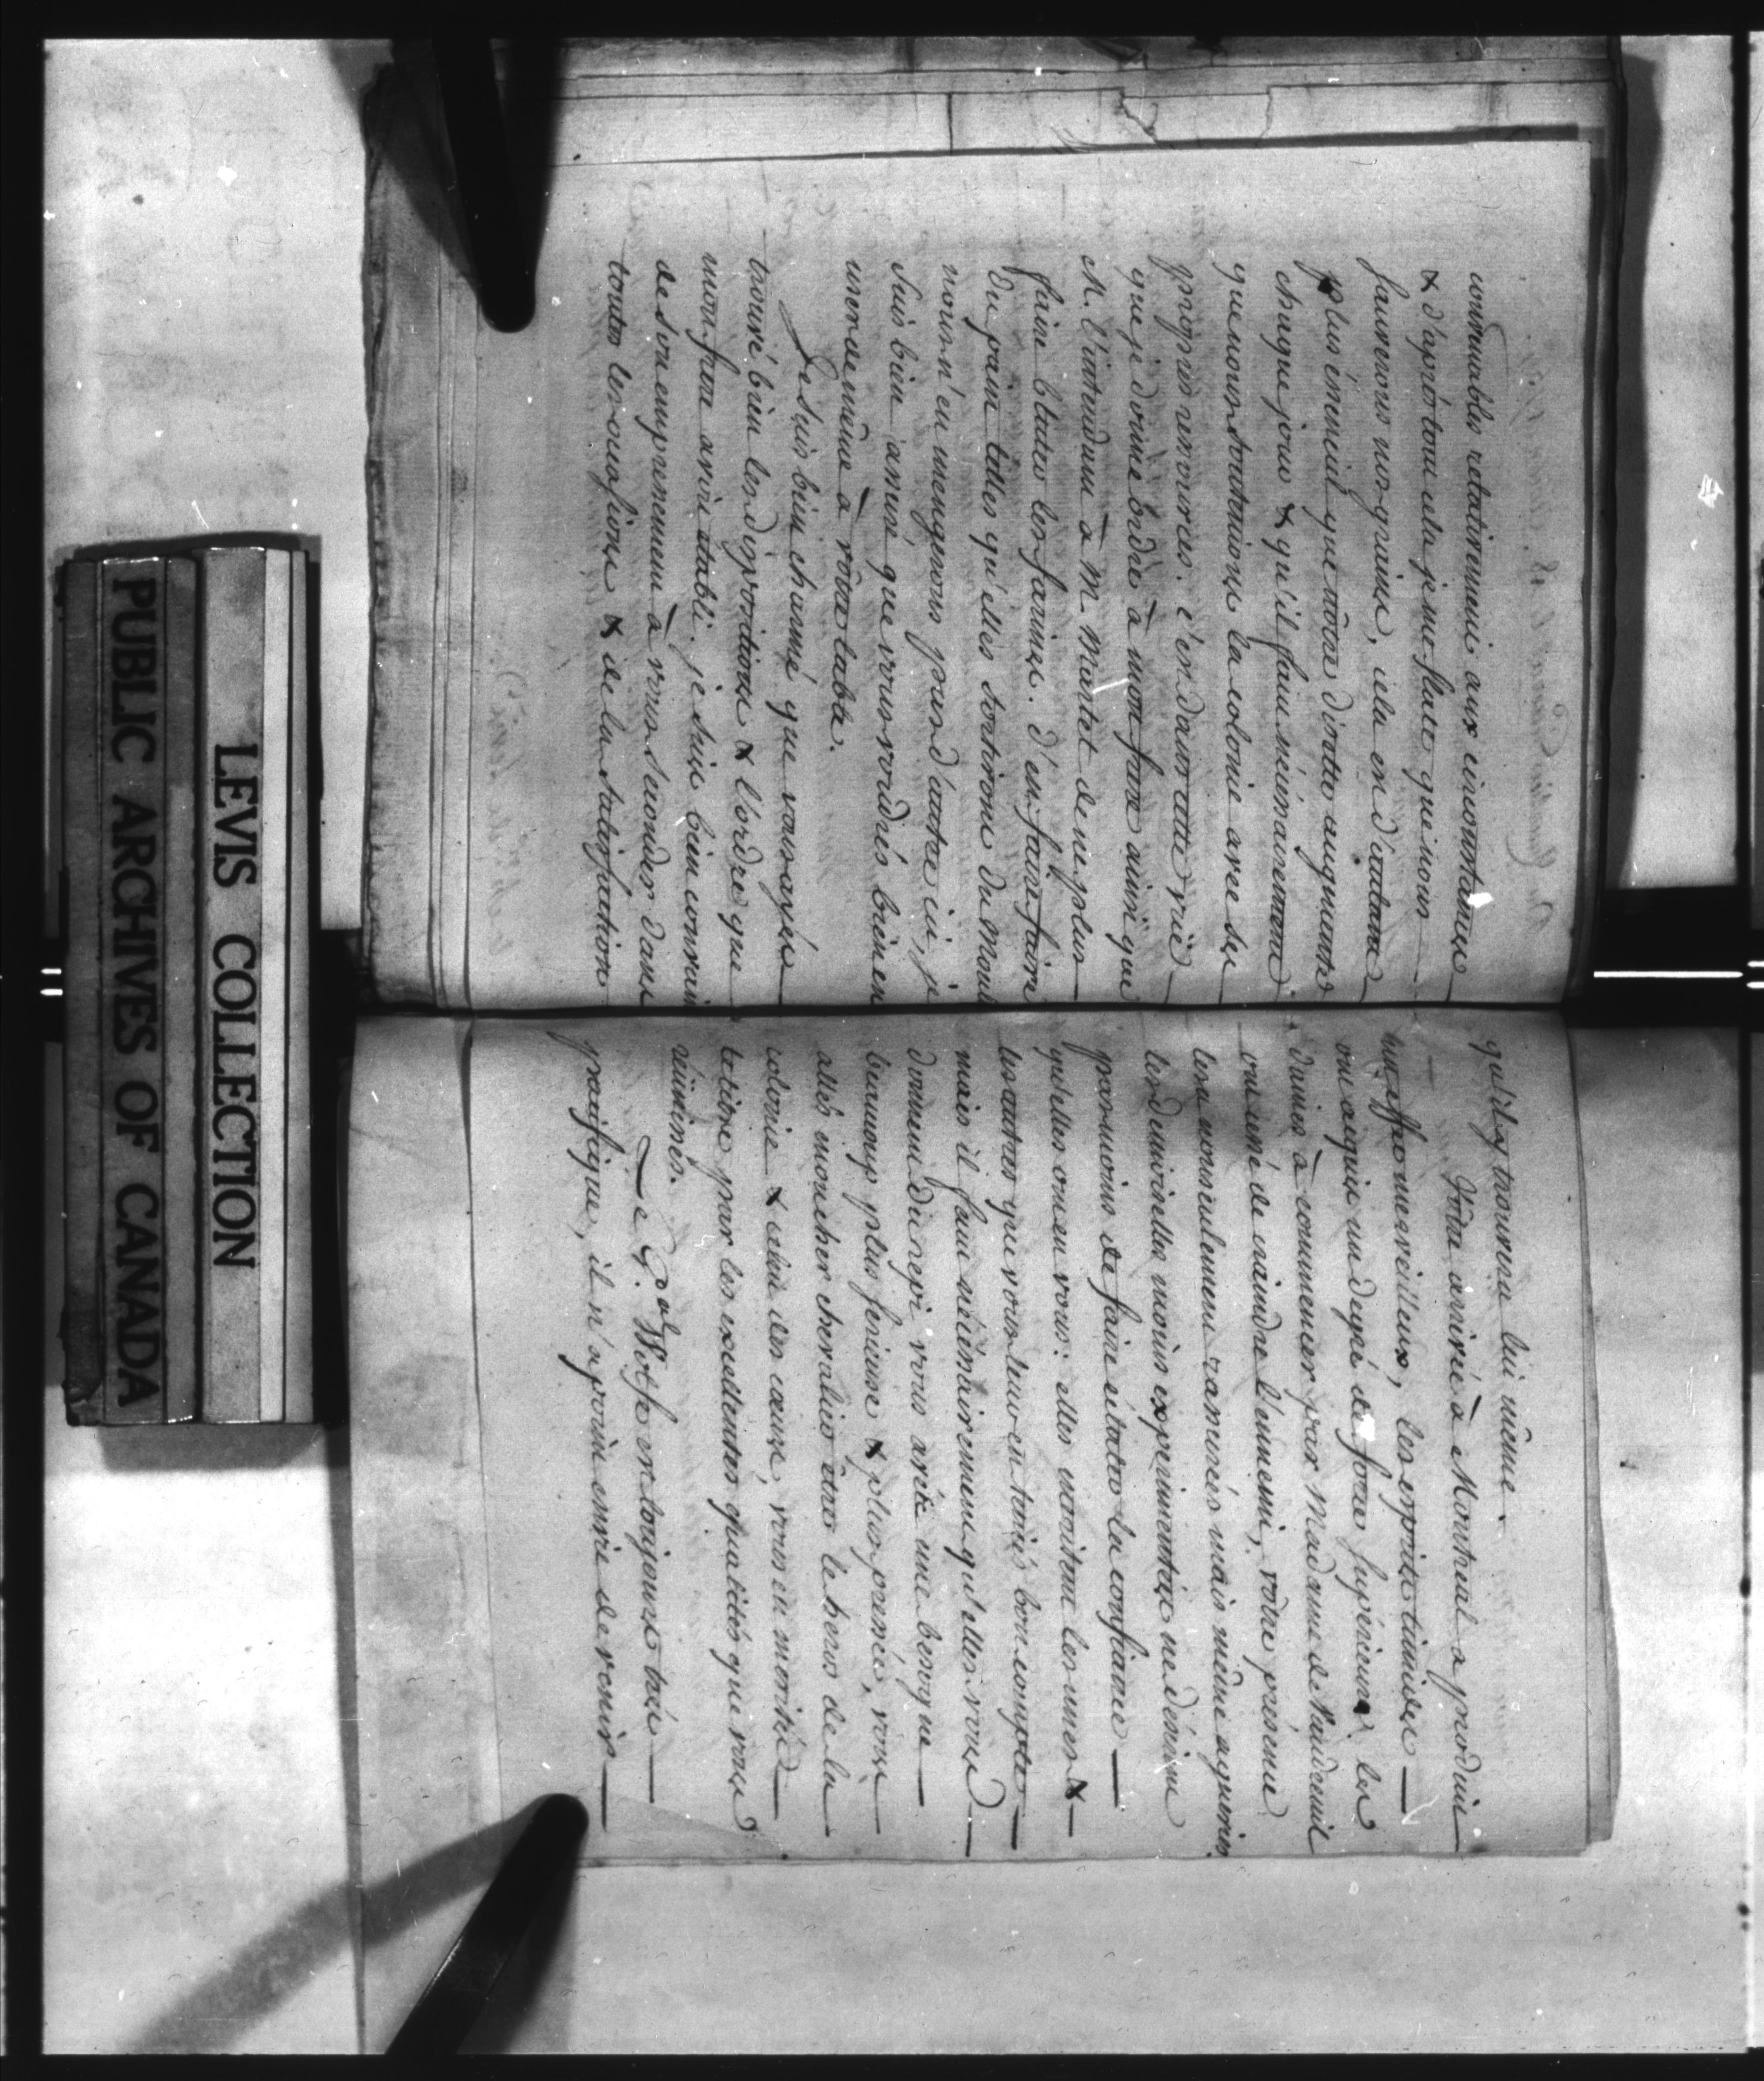 convenables relativement aux circonstances
& d'aprés tout cela je me flatte que nous
sauverons nos grains, cela est d'autant
plus essenciel que nôtre disette augmente
chaque jour & qu'il faut nécessairement
que nous soutenions la colonie avec ses
propres ressources. c'est dans cette vüe
que je donne ordre à mon frere ainsi que
M. l'intendant à M. Martel de ne plus
faire bluter les farines. d'en faire faire
du pain telles qu'elles sortiront du Moul
nous n'en mengerons pas d'autre ici, je
suis bien assuré que vous voudrés bien en
user de même à vôtre table.
Je suis bien charmé que vous ayés
trouvé bien les dispositions & l'ordre que
mon frere avoit établi. je suis bien convain
de son empressement à vous seconder dans
toutes les occasions & de la satisfaction
qu'il y trouvera lui même.
Vôtre arrivée à Montreal a produit
un effet merveilleux, les esprits timides
ont acquis un degré de force supérieur, les
dames à commencer par Madame de Vaudreuil
ont cessé de craindre l'ennemi, vôtre présence
les a non seulement rassurés mais même aguerries,
les demoiselles moins experimentées ne désirent
pas moins de faire éclater la confiance
qu'elles ont en vous: elles méritent les unes &
les autres que vous leur en teniés bon compte
mais il faut nécessairement qu'elles vous
donnent du repi vous avés une besogne
beaucoup plus serieuse & plus pressée, vous
allés mon cher chevalier être le heros de la
colonie & celui des cœurs, vous en merités
le titre par les excellentes qualités que vous
réünisés.
Le G.al Wolfe est toujours trés
pacifique, il n'a point envie de venir
LEVIS COLLECTION
PUBLIC ARCHIVES OF CANADA